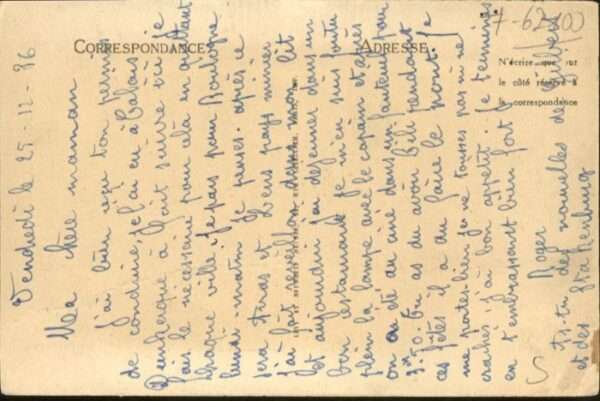 CORRESPONDANCE
ADRESSE
N'écrire que sur
le côté réservé à
la correspondance
Vendredi le 25-12-36
Ma chère maman
J'ai bien reçu ton permis
de conduire, je l'ai eu à Calais
Dunkerque à fait suivre ici je
fais le nécessaire pour cela en quittant
chaque ville. Je pars pour Boulogne
lundi matin je pense. après ce
sera Arras et Lens pays minier
j'ai fait réveillon dans mon lit
et aujourd'hui j'ai déjeuner dans un
bon restaurant je m'en suis foutu
plein la lampe avec le copain et après
on a été au ciné dans un fauteuil pour
3frs50. Tu as du avoir Bili pendant
ces fêtes il a du faire le pont. Je
me portes bien je ne tousses pas ni ne
craches j'ai bon appétit. Je termines
en t'embrassant bien fort
Roger
As-tu des nouvelles de
et des